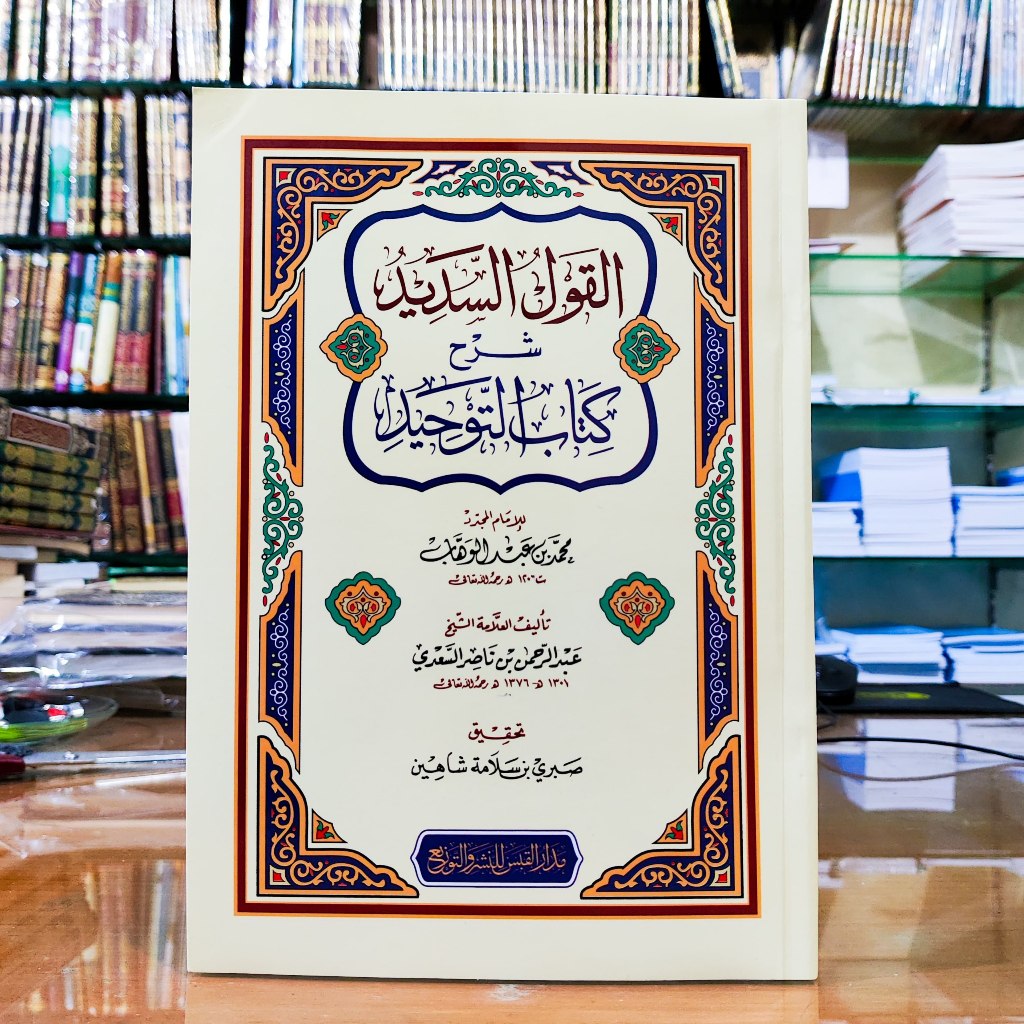 القَوْلُ السَّدِيْدُ
شَرْح
كِتَابُ التَّوْحِيْدِ
للإمَام المجدّد
محمَّد بن عَبْد الوَهَّاب
ت ١٢٠٦ هـ رحمه الله تعالى
تأليف العلَّامة الشّيخ
عَبْد الرّحمٰن بْن نَاصِر السَّعْدي
١٣٠١ هـ - ١٣٧٦ هـ رحمه الله تعالى
تحقِيْق
صَبري بن سَلَامة شاهِين
مدار القبس للنشر والتوزيع